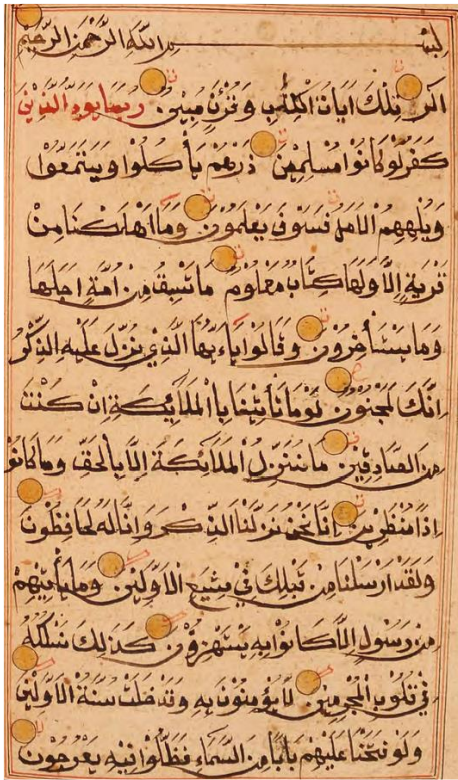 بسم الله الرحمن الرحيم
الر تلك ايات الكتب وقرءن مبين ربما يود الذين
كفروا لو كانوا مسلمين ذرهم يأكلوا ويتمتعوا
ويلههم الامل فسوف يعلمون وما اهلكنا من
قرية الا ولها كتاب معلوم ما تسبق من امة اجلها
وما يستأخرون وقالوا ياءيها الذي نزل عليه الذكر
انك لمجنون لو ما تأتينا بالملائكة ان كنت
من الصادقين ما ننزل الملائكة الا بالحق وما كانوا
اذا منظرين انا نحن نزلنا الذكر وانا له لحافظون
ولقد ارسلنا من قبلك في شيع الاولين وما يأتيهم
من رسول الا كانوا به يستهزؤن كذلك نسلكه
في قلوب المجرمين لا يؤمنون به وقد خلت سنة الاولين
ولو فتحنا عليهم بابا من السماء فظلوا فيه يعرجون